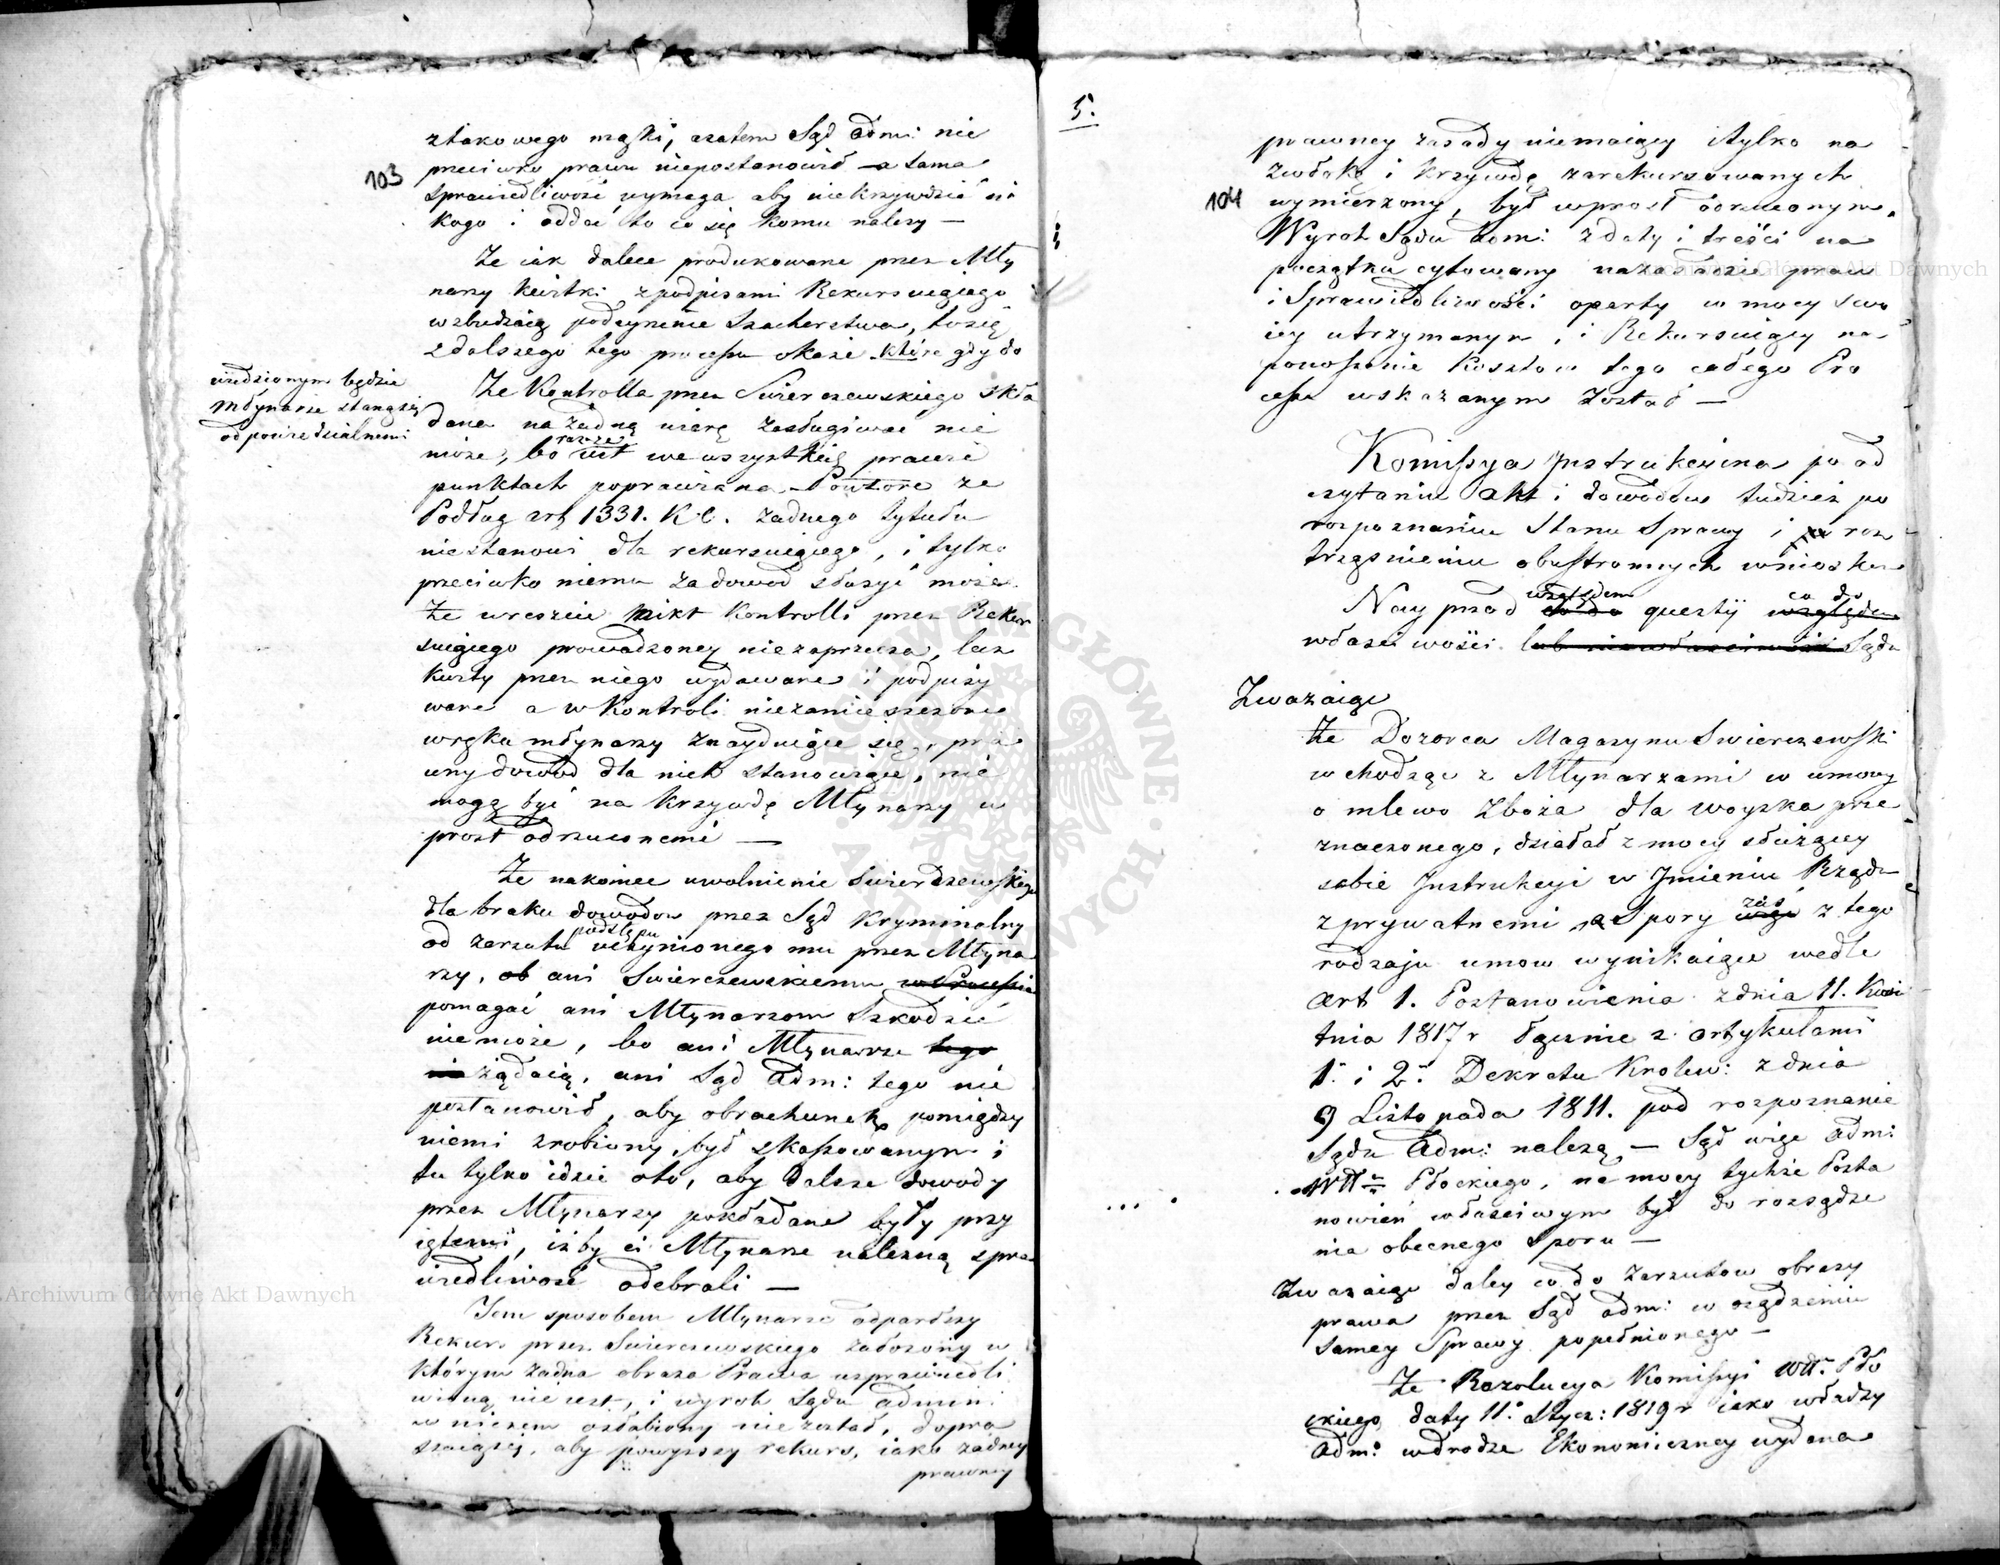 103
ztakowego mąki, azatem Sąd Adm: nie
przeciwko prawu niepostanowił a sama
sprawiedliwość wymaga aby niekrzywdzić ni
kogo i oddać to co się komu należy —
Że iak dalece produkowane przez Mły
narzy kwitki zpodpisami Rekursuiącego
wzbudzaią podeyrzenie szacherstwa, to się
zdalszego tego processu okaże które gdy do
wiedzionym będzie
Młynarze staną się
odpowiedzialnemi
Że Kontrolla przez Swierczewskiego skła
dana na żadną wiarę zasługiwać nie
może, bo raz że iest we wszystkich prawie
punktach poprawiana Powtore że
Podług art 1331. K C. żadnego tytułu
niestanowi dla rekursuiącego, i tylko
przeciwko niemu za dowod służyć może
Że wreszcie nikt Kontrolli przez Rekur
suiącego prowadzoney niezaprzecza, lecz
kwity przez niego wydawane i podpisy
wane a w Kontroli niezamieszczone
w ręku młynarzy znayduiące się, pra
wny dowod dla nich stanowiące, nie
mogą być na krzywdę Młynarzy w
prost odrzuconemi —
Że nakoniec uwolnienie Swierczewskiego
dla braku dowodow przez Sąd Kryminalny
od zarzutu podstępu uczynionego mu przez Młyna
rzy, ani Swierczewskiemu w Processie
pomagać ani Młynarzom szkodzić
niemoże, bo ani Młynarze tego
nie żądaią, ani Sąd Adm: tego nie
postanowił, aby obrachunek pomiędzy
niemi zrobiony, był skassowanym i
tu tylko idzie oto, aby dalsze dowody
przez Młynarzy pokładane były przy
iętemi, iżby ci Młynarze należną spra
wiedliwość odebrali —
Tem sposobem Młynarze odparłszy
Rekurs przez Swierczewskiego założony w
którym żadna obraza Prawa usprawiedli
wioną nie iest, i wyrok Sądu admin:
w niczem osłabiony nie został, dopra
szaią się, aby powyższy rekurs, iako żadney
prawney
5.
104
prawney zasady niemaiący i tylko na
zwłokę i krzywdę zarekursowanych
wymierzony, był wprost odrzuconym.
Wyrok Sądu Adm: z daty i treści na
początku cytowany na zasadzie praw
i Sprawiedliwości oparty w mocy swo
iey utrzymanym, i Rekursuiący na
ponoszenie kosztow tego całego Pro
cessu wskazanym został —
Komissya Instrukcyina po od
czytaniu akt i dowodow tudzież po
rozpoznaniu Stanu Sprawy i roz
trząśnieniu obustronnych wniosków
Nay przod względem co do questyi co do względem
właściwości lub niewłaściwości Sądu
Zważaiąc
Że Dozorca Magazynu Swierczewski
wchodząc z Młynarzami w umowy
o mlewo zboża dla woyska prze
znaczonego, działał z mocy służącey
sobie Instrukcyi w Imieniu Rządu
z prywatnemi, a Spory zaś więc z tego
rodzaju umow wynikaiące wedle
Art 1. Postanowienia z dnia 11. Kwie
tnia 1817 r łącznie z artykułami
1. i 2. Dekretu Krolew: z dnia
9 Listopada 1811. pod rozpoznanie
Sądu Adm: należą, — Sąd więc Adm:
Wtt Płockiego, na mocy tychże Posta
nowień właściwym był do rozsądze
nia obecnego sporu —
Zważaiąc daley co do zarzutow obrazy
prawa przez Sąd adm: w osądzeniu
samey Sprawy popełnionego —
Że Rezolucya Komissyi Wtt. Pło
ckiego daty 11. Stycz: 1819 r iako władzy
Adm: wdrodze Ekonomiczney wydana
Archiwum Główne Akt Dawnych